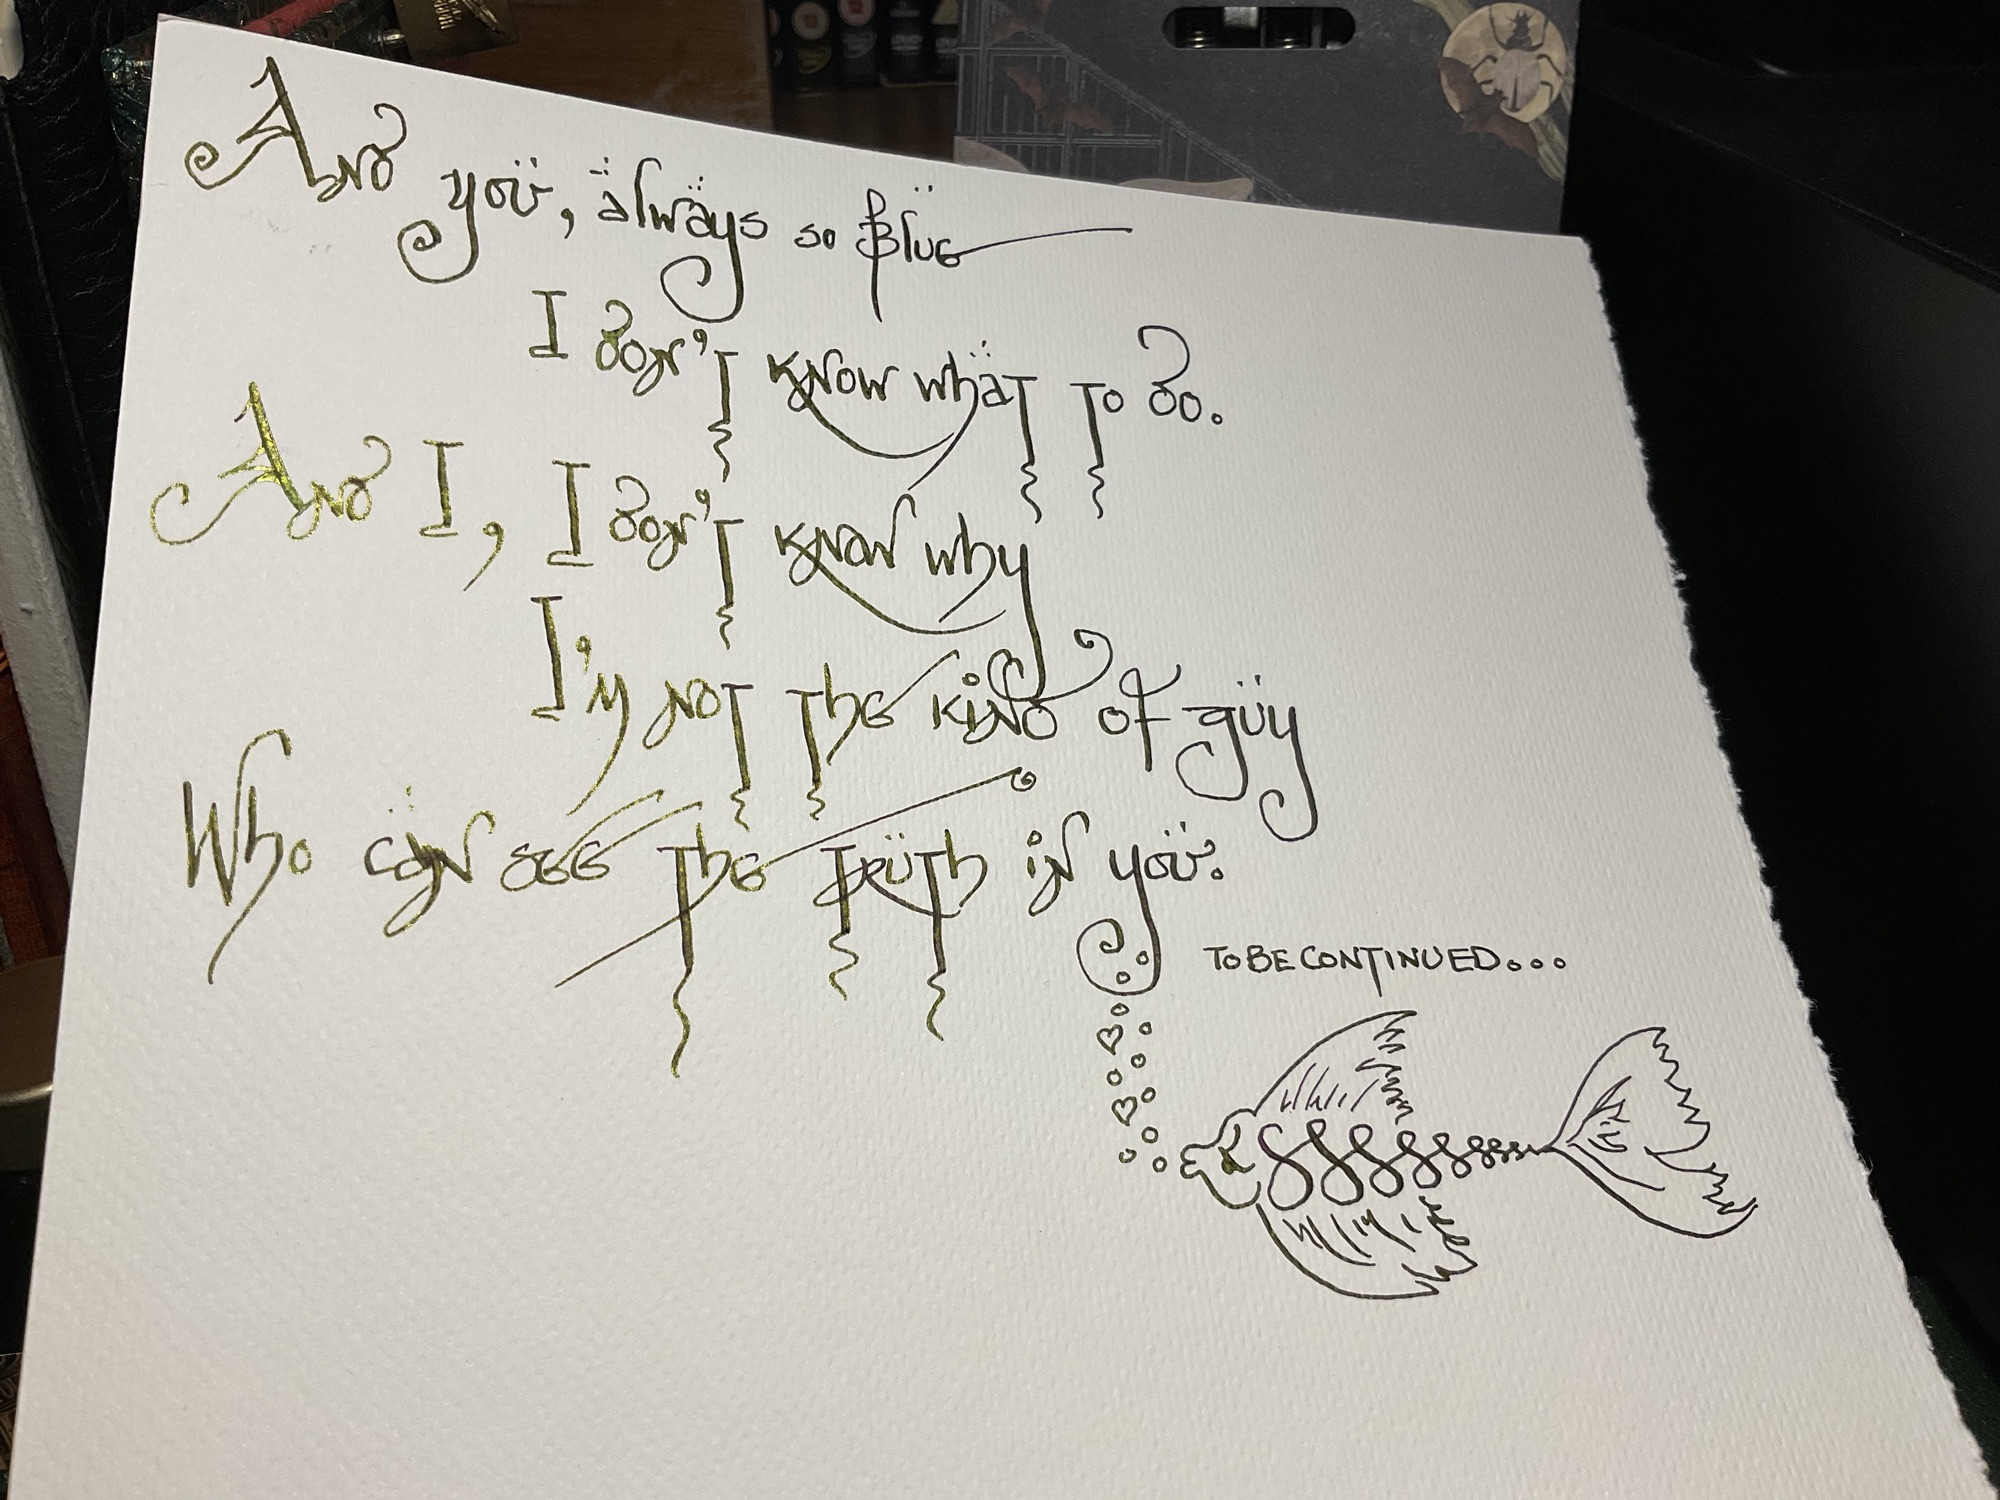 And you, always so Blue
I don't know what to do.
And I, I don't know why
I'm not the kind of guy
Who can see the truth in you.
TO BE CONTINUED...